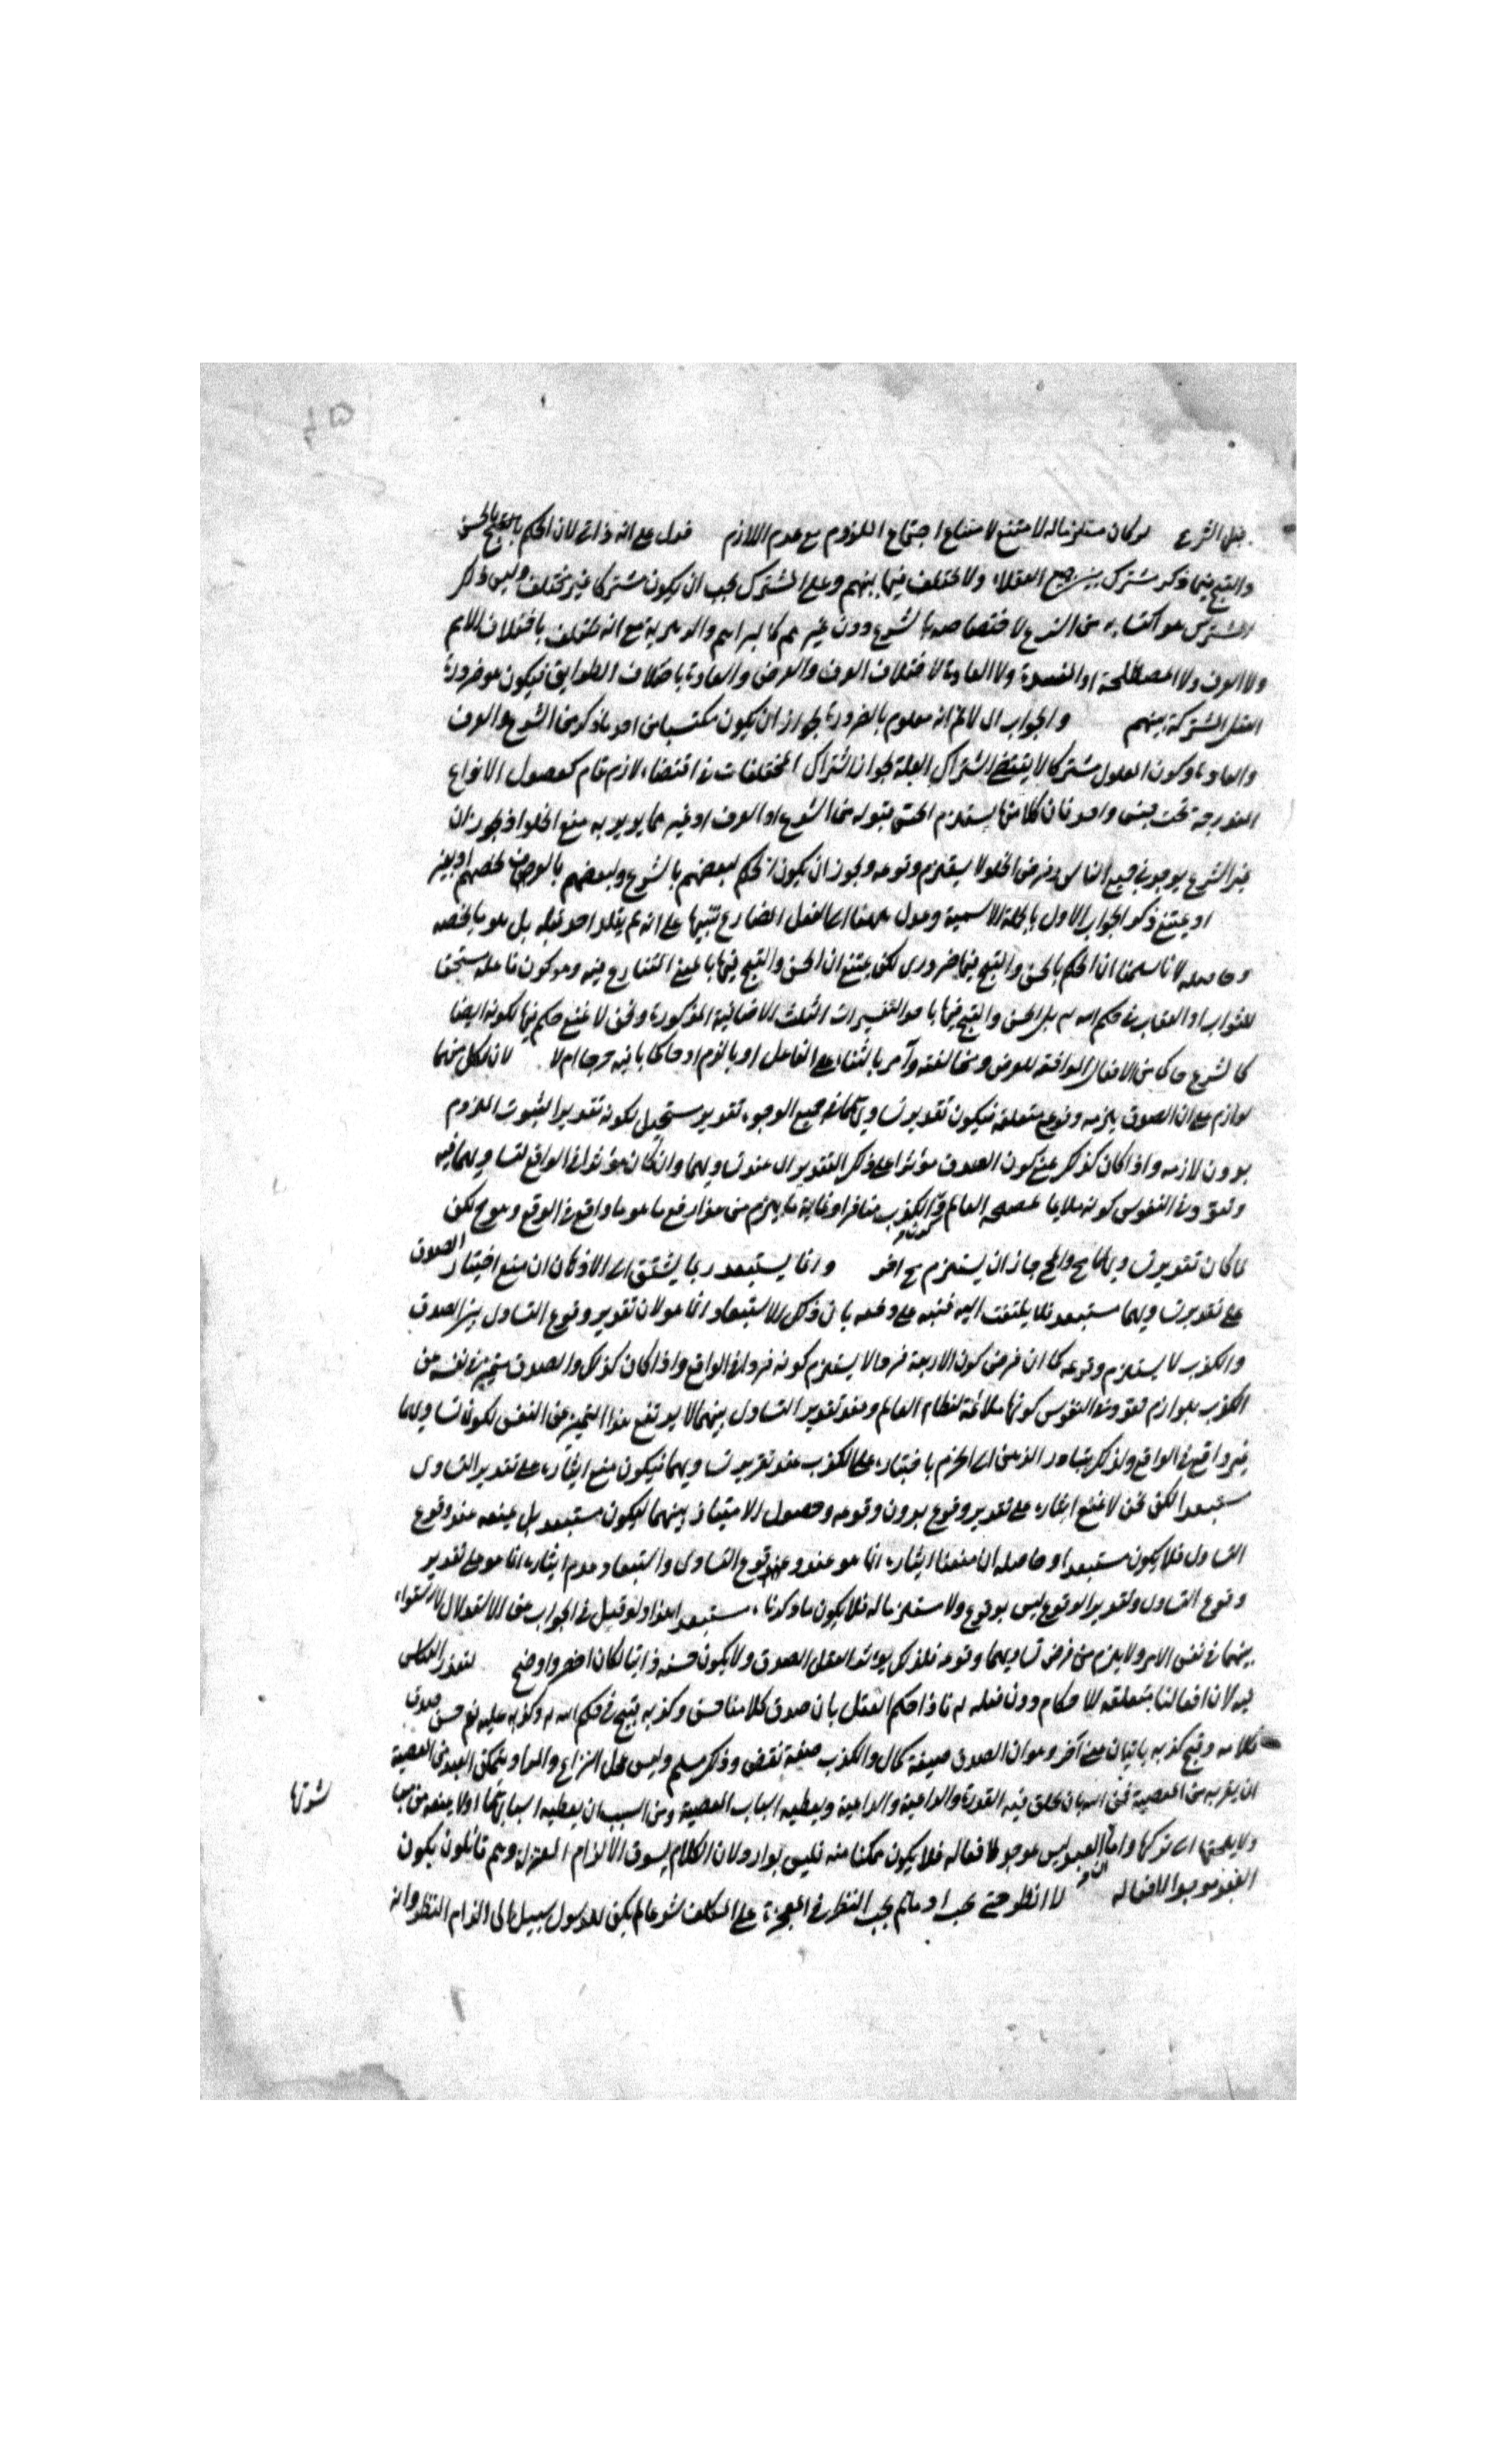 قبل الشرع لو كان مستلزما له لامتنع لامتناع اجتماع الملزوم مع عدم اللازم فدل على انه ذاتى لان الحكم بالحسن
والقبح فيما ذكر مشترك بين جميع العقلاء ولا يختلف فيما بينهم وعلى المشترك يجب ان يكون مشتركا غير مختلف وليس ذلك
المشترك هو اكتسابه من الشرع لاختصاصه بالشرع دون غيرهم كالبراهمة والدهرية مع انه مختلف باختلاف الامم
ولا العرف ولا المصلحة او المفسدة ولا العادة لاختلاف العرف والغرض والعادة باختلاف الطوايف فيكون هو ضرورة
العقل المشتركة بينهم والجواب انا لا نم انه معلوم بالضرورة لجواز ان يكون مكتسبا من احد ما ذكر من الشرع والعرف
والعادة وكون المعلول مشتركا لا يقتضى اشتراك العلة لجواز اشتراك المختلفات فى اقتضاء لازم عام كفصول الانواع
المندرجة تحت جنس واحد فان كلا منها يستلزم الجنس قوله من الشرع او العرف او غيرهما يريد به منع الخلو اذ يجوز ان
غير الشرع يوجد فى جميع الناس وفرض الخلو لا يستلزم وقوعه ويجوز ان يكون الحكم لبعضهم بالشرع ولبعضهم بالعرف
او يمتنع ذكر الجواب الاول بالجملة الاسمية وعدل ههنا الى الفعل المضارع تنبيها على انه لم يقله احد قبله بل هو ما يخصه
وحاصله لانا سلمنا ان الحكم بالحسن والقبح فيها ضرورى لكن يمتنع ان الحسن والقبح فيها بالمعنى المتنازع فيه وهو كون فاعله مستحقا
للثواب او العقاب فى حكم الله تعالى بل الحسن والقبح فيها باحد التفسيرات الثلث الاضافية المذكورة ونحن لا نمنع حكم فيها لكونه ايضا
كالشرع حاكما من الافعال الموافقة للغرض ومخالفته وآمر بالثناء على الفاعل او بالذم او حاكما بان فيه حرجا ام لا لان لكل منهما
لوازم على ان الصدق يلزمه وقوع متعلقه فيكون تقدير تساويهما فى جميع الوجوه تقدير مستحيل لكونه تقديرا لثبوت الملزوم
بدون لازمه واذا كان كذلك نمنع كون الصدق مؤثرا على ذلك التقدير اى عند تساويهما وان كان مؤثرا فى الواقع لتساويهما فيه
وتقرر فى النفوس كونه ملايما لمصلحة العالم وكون الكذب منافرا وغاية ما يلزم من هذا رفع ما هو واقع فى الواقع وهو مح لكن
لما كان تقدير تساويهما مح والمح جاز ان يستلزم مح آخر وانما يستبعد ربما يشتق الى الاذهان ان منع اختيار الصدق
على تقدير تساويهما مستبعد فلا يلتفت اليه فنبه على دفعه بان ذلك الاستبعاد انما هو لان تقدير وقوع التساوى بين الصدق
والكذب لا يستلزم وقوعه كما ان فرض كون الاربعة فردا لا يستلزم كونه فردا فى الواقع واذا كان كذلك والصدق متميز فى نفسه عن
الكذب بلوازم تقرر فى النفوس كونها ملائمة لنظام العالم وعند تقدير التساوى بينهما لا يرتفع هذا التميز عن النفس لكون تساويهما
غير واقع فى الواقع ولذلك يتبادر الذهن الى الجزم باختياره على الكذب عند تقدير تساويهما فيكون منع ايثاره على تقدير التساوى
مستبعدا لكن نحن لا نمنع ايثاره على تقدير وقوع بدون وقوعه وحصول الامتياز بينهما ليكون مستبعدا بل نمنعه عند وقوع
التساوى فلا يكون مستبعدا وحاصله ان منعنا ايثاره انما هو عند وقوع التساوى واستبعاد عدم ايثاره انما هو على تقدير
وقوع التساوى وتقدير الوقوع ليس بوقوع ولا مستلزما له فلا يكون ما ذكرناه مستبعدا هذا ولو قيل فى الجواب عن الاستدلال لا استواء
بينهما فى نفس الامر ولا يلزم من فرض تساويهما وقوعه فلذلك يؤثر العقل الصدق ولا يكون حسنه ذاتيا لكان اخصر واوضح
فيه لان افعالنا متعلقة للاحكام دون فعله تعالى فاذا حكم العقل بان صدق كلامنا حسن وكذبه قبيح فى حكم الله تعالى
كلامه وقبح كذبه بالبيان معنى آخر وهو ان الصدق صفة كمال والكذب صفة نقص وذلك مسلم وليس محل النزاع والمراد بتمكين العبد من المعصية
ان يقربه من المعصية فمن الله بان يخلق فيه القدرة والداعية ويعطيه اسباب المعصية ومن السبب ان يعطيه اسبابها اولا يمنعه منها
ولا يلجئها الى تركها واما العبد ليس موجدا لافعاله فلا يكون ممكنا منه فليس بوارد لان الكلام يسوق لالزام المعتزلة وهم قائلون بكون
العبد موجدا لافعاله لا انظر حتى يجب او ما لم يجب النظر فى المعجزة على المكلف شرعا لم يكن للرسول سبيل الى الزام النظر وانه